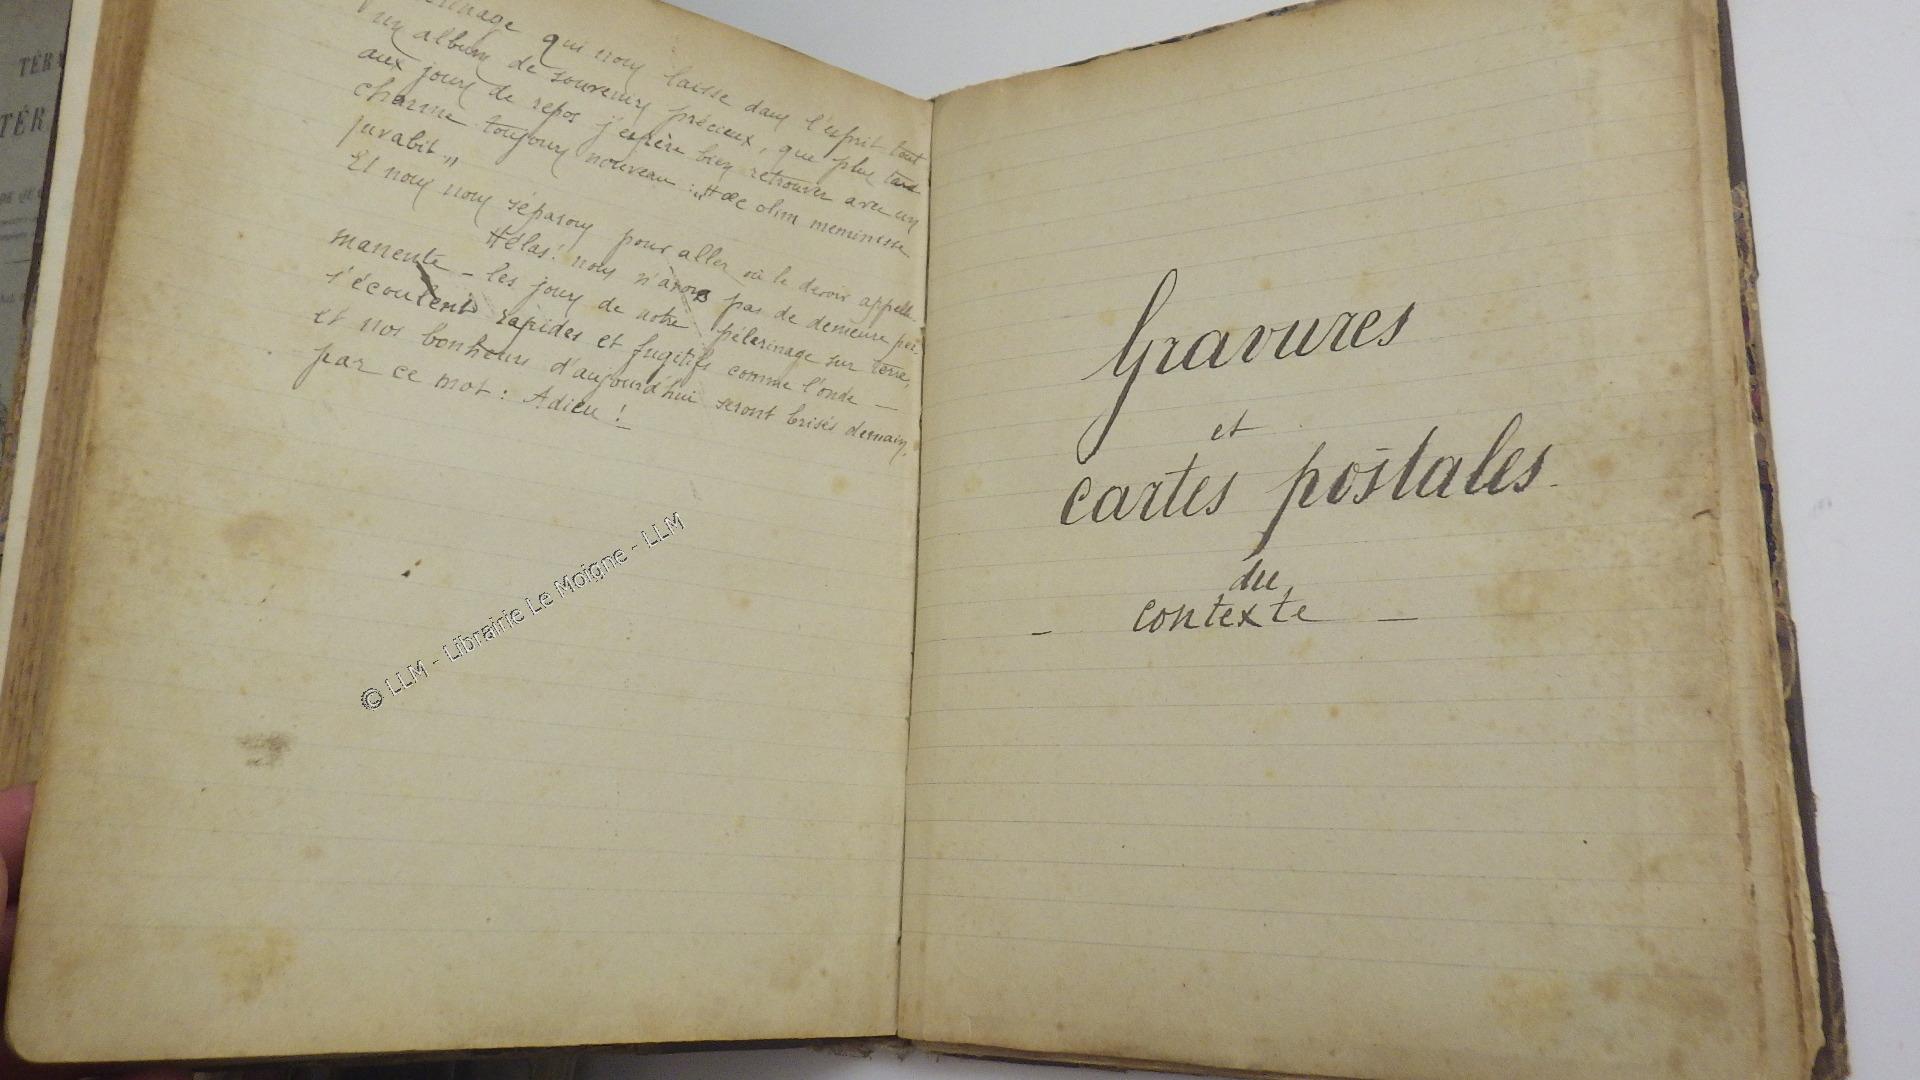 qui nous laisse dans l'esprit tout
un album de souvenirs précieux, que plus tard
aux jours de repos j'espère bien retrouver avec un
charme toujours nouveau : "Haec olim meminisse
juvabit"
Et nous nous séparons pour aller où le devoir appelle.
Hélas! nous n'avons pas de demeure per-
manente - les jours de notre pélerinage sur terre,
s'écoulent rapides et fugitifs comme l'onde -
et nos bonheurs d'aujourd'hui seront brisés demain,
par ce mot : Adieu !
Gravures
et
cartes postales
du
- contexte -
© LLM - Librairie Le Moigne - LLM